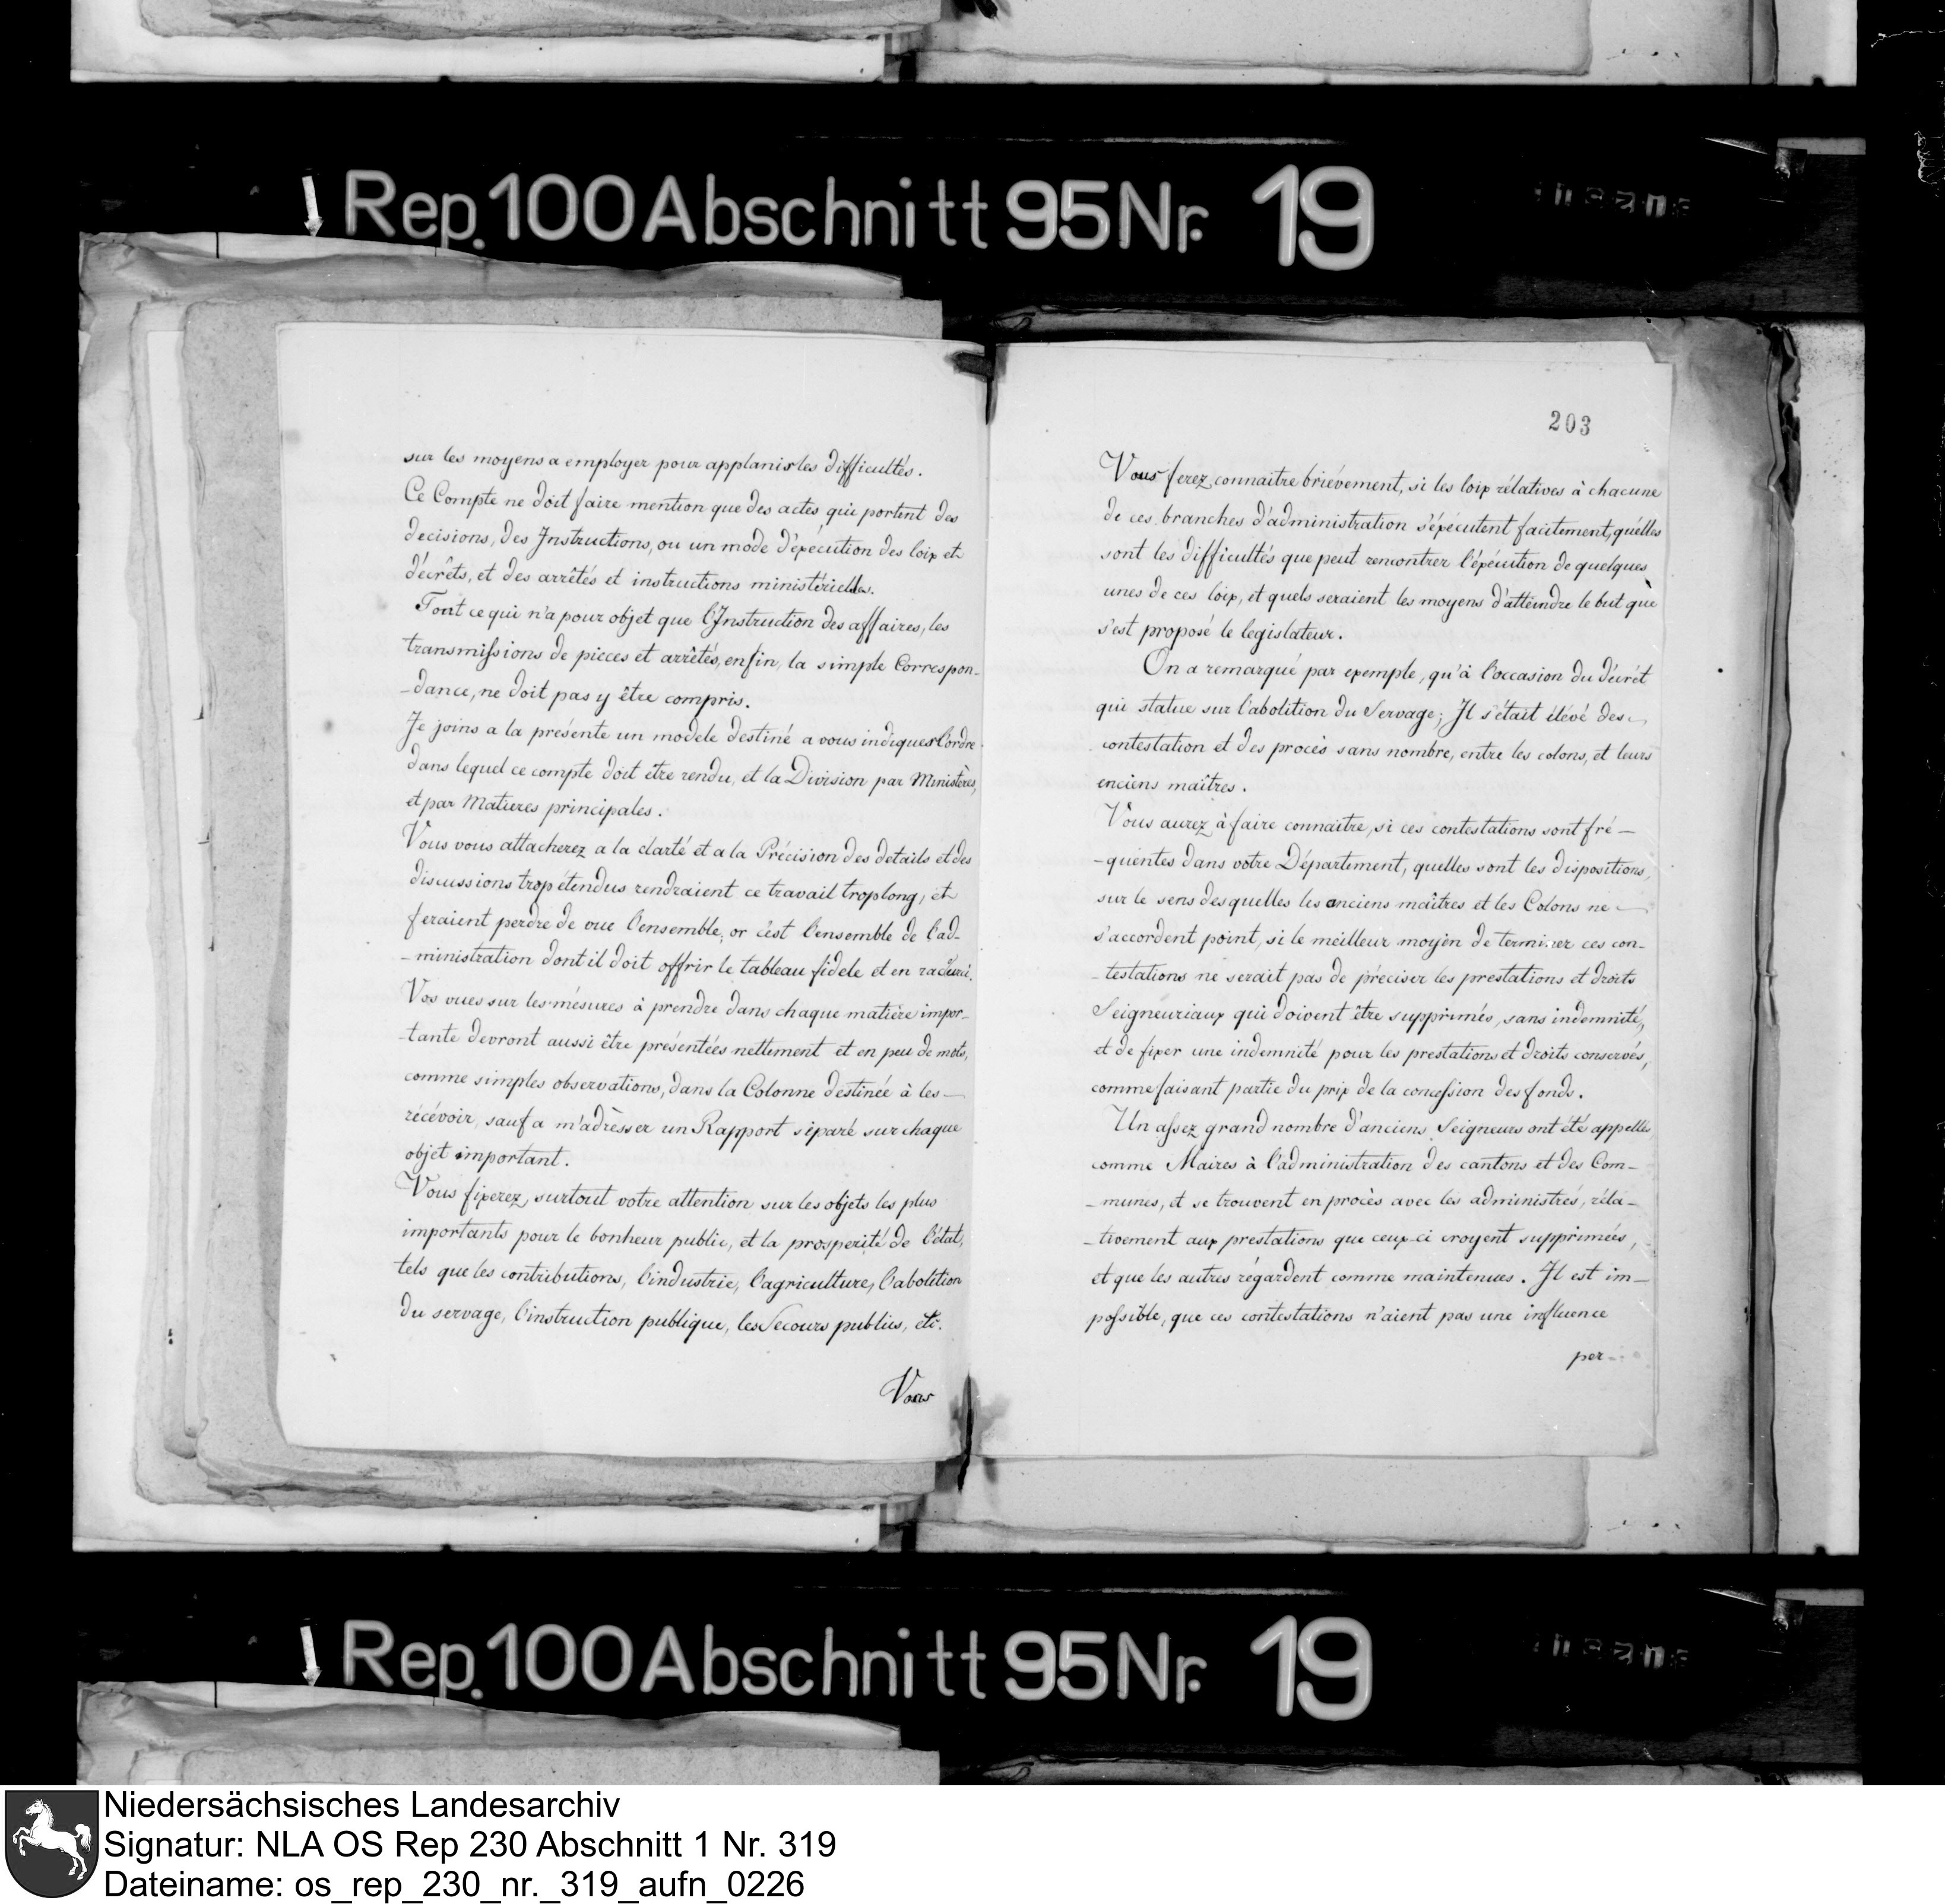 Rep. 100 Abschnitt 95 Nr. 19
sur les moyens a employer pour applanir les difficultés.
Ce Compte ne doit faire mention que des actes qui portent des
decisions, des Instructions, ou un mode d'éxécution des loix et
décrêts, et des arrêtés et instructions ministérielles.
Tout ce qui n'a pour objet que l'Instruction des affaires, les
transmissions de pieces et arrêtés, enfin, la simple Correspon-
-dance, ne doit pas y être compris.
Je joins a la présente un modele destiné a vous indiquer l'ordre
dans lequel ce compte doit être rendu, et la Division par Ministères,
et par Matieres principales.
Vous vous attacherez a la clarté et a la Précision des details et des
discussions trop étendus rendraient ce travail trop long, et
feraient perdre de vue l'ensemble, or c'est l'ensemble de l'ad-
-ministration dont il doit offrir le tableau fidele et en racourci.
Vos vues sur les mésures à prendre dans chaque matière impor-
-tante devront aussi être présentées nettement et en peu de mots,
comme simples observations, dans la Colonne destinée à les
récévoir, sauf a m'adrèsser un Rapport séparé sur chaque
objet important.
Vous fixerez surtout votre attention sur les objets les plus
importants pour le bonheur public, et la prosperité de l'état,
tels que les contributions, l'industrie, l'agriculture, l'abolition
du servage, l'instruction publique, les Secours publics, etc.
Vous
203
Vous ferez connaitre brièvement, si les loix rélatives à chacune
de ces branches d'administration s'éxécutent facilement, quélles
sont les difficultés que peut rencontrer l'éxécution de quelques
unes de ces loix, et quels seraient les moyens d'atteindre le but que
s'est proposé le legislateur.
On a remarqué par exemple, qu'à l'occasion du décrét
qui statue sur l'abolition du Servage; Il s'était élévé des
contestation et des procès sans nombre, entre les colons, et leurs
enciens maîtres.
Vous aurez à faire connaitre, si ces contestations sont fré-
-quentes dans votre Département, quelles sont les dispositions,
sur le sens desquelles les anciens maîtres et les Colons ne
s'accordent point, si le meilleur moyen de terminer ces con-
-testations ne serait pas de préciser les prestations et droits
Seigneuriaux qui doivent être supprimés, sans indemnité,
et de fixer une indemnité pour les prestations et droits conservés,
comme faisant partie du prix de la concession des fonds.
Un assez grand nombre d'anciens Seigneurs ont été appellés
comme Maires à l'administration des cantons et des Com-
-munes, et se trouvent en procès avec les administrés, réla-
-tivement aux prestations que ceux-ci croyent supprimées,
et que les autres régardent comme maintenues. Il est im-
possible, que ces contestations n'aient pas une influence
per-
Rep. 100 Abschnitt 95 Nr. 19
Niedersächsisches Landesarchiv
Signatur: NLA OS Rep 230 Abschnitt 1 Nr. 319
Dateiname: os_rep_230_nr._319_aufn_0226